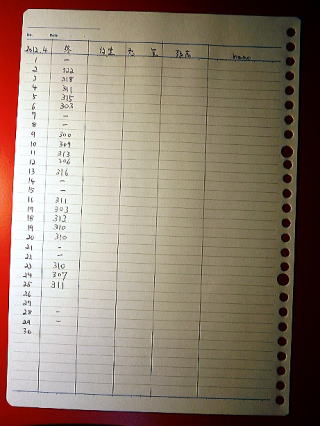 No. Date
2012.4. 終 memo
1 -
2 322
3 318
4 311
5 315
6 303
7 -
8 -
9 300
10 309
11 313
12 306
13 316
14 -
15 -
16 311
17 303
18 312
19 310
20 310
21 -
22 -
23 310
24 307
25 311
26
28 -
29 -
30